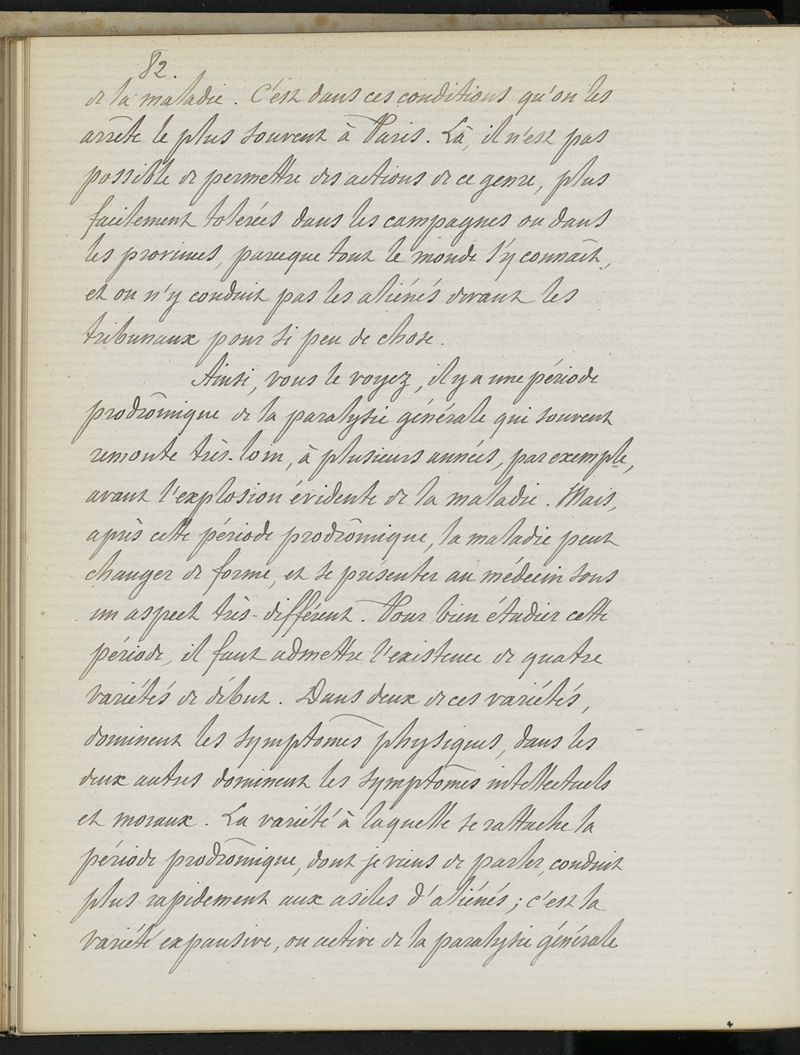 82.
de la maladie. C'est dans ces conditions qu'on les
arrête le plus souvent à Paris. Là, il n'est pas
possible de permettre des actions de ce genre, plus
facilement tolérées dans les campagnes ou dans
les provinces, parceque tout le monde s'y connaît,
et on n'y conduit pas les aliénés devant les
tribunaux pour si peu de chose.
Ainsi, vous le voyez, il y a une période
prodrômique de la paralysie générale qui souvent
remonte très-loin, à plusieurs années, par exemple,
avant l'explosion évidente de la maladie. Mais,
après cette période prodrômique, la maladie peut
changer de forme, et se présenter au médecin sous
un aspect très-différent. Pour bien étudier cette
période, il faut admettre l'existence de quatre
variétés de début. Dans deux de ces variétés,
dominent les symptômes physiques, dans les
deux autres dominent les symptômes intellectuels
et moraux. La variété à laquelle se rattache la
période prodrômique, dont je viens de parler, conduit
plus rapidement aux asiles d'aliénés; c'est la
variété expansive, ou active de la paralysie générale